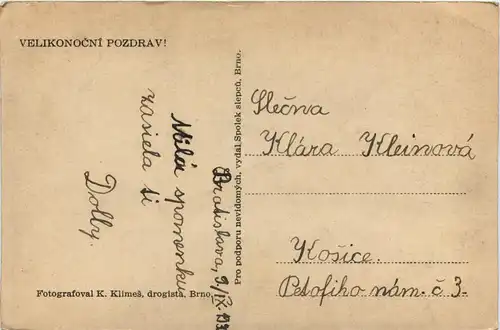 VELIKONOČNÍ POZDRAV!
Bratislava, 9/IX. 193
Milá spomenku
zasiela ti
Dolly.
Fotografoval K. Klimeš, drogista, Brno.
Pro podporu nevidomých, vydal Spolek slepců, Brno.
Slečna
Klára Kleinová
Košice.
Petofiho nám. č 3.